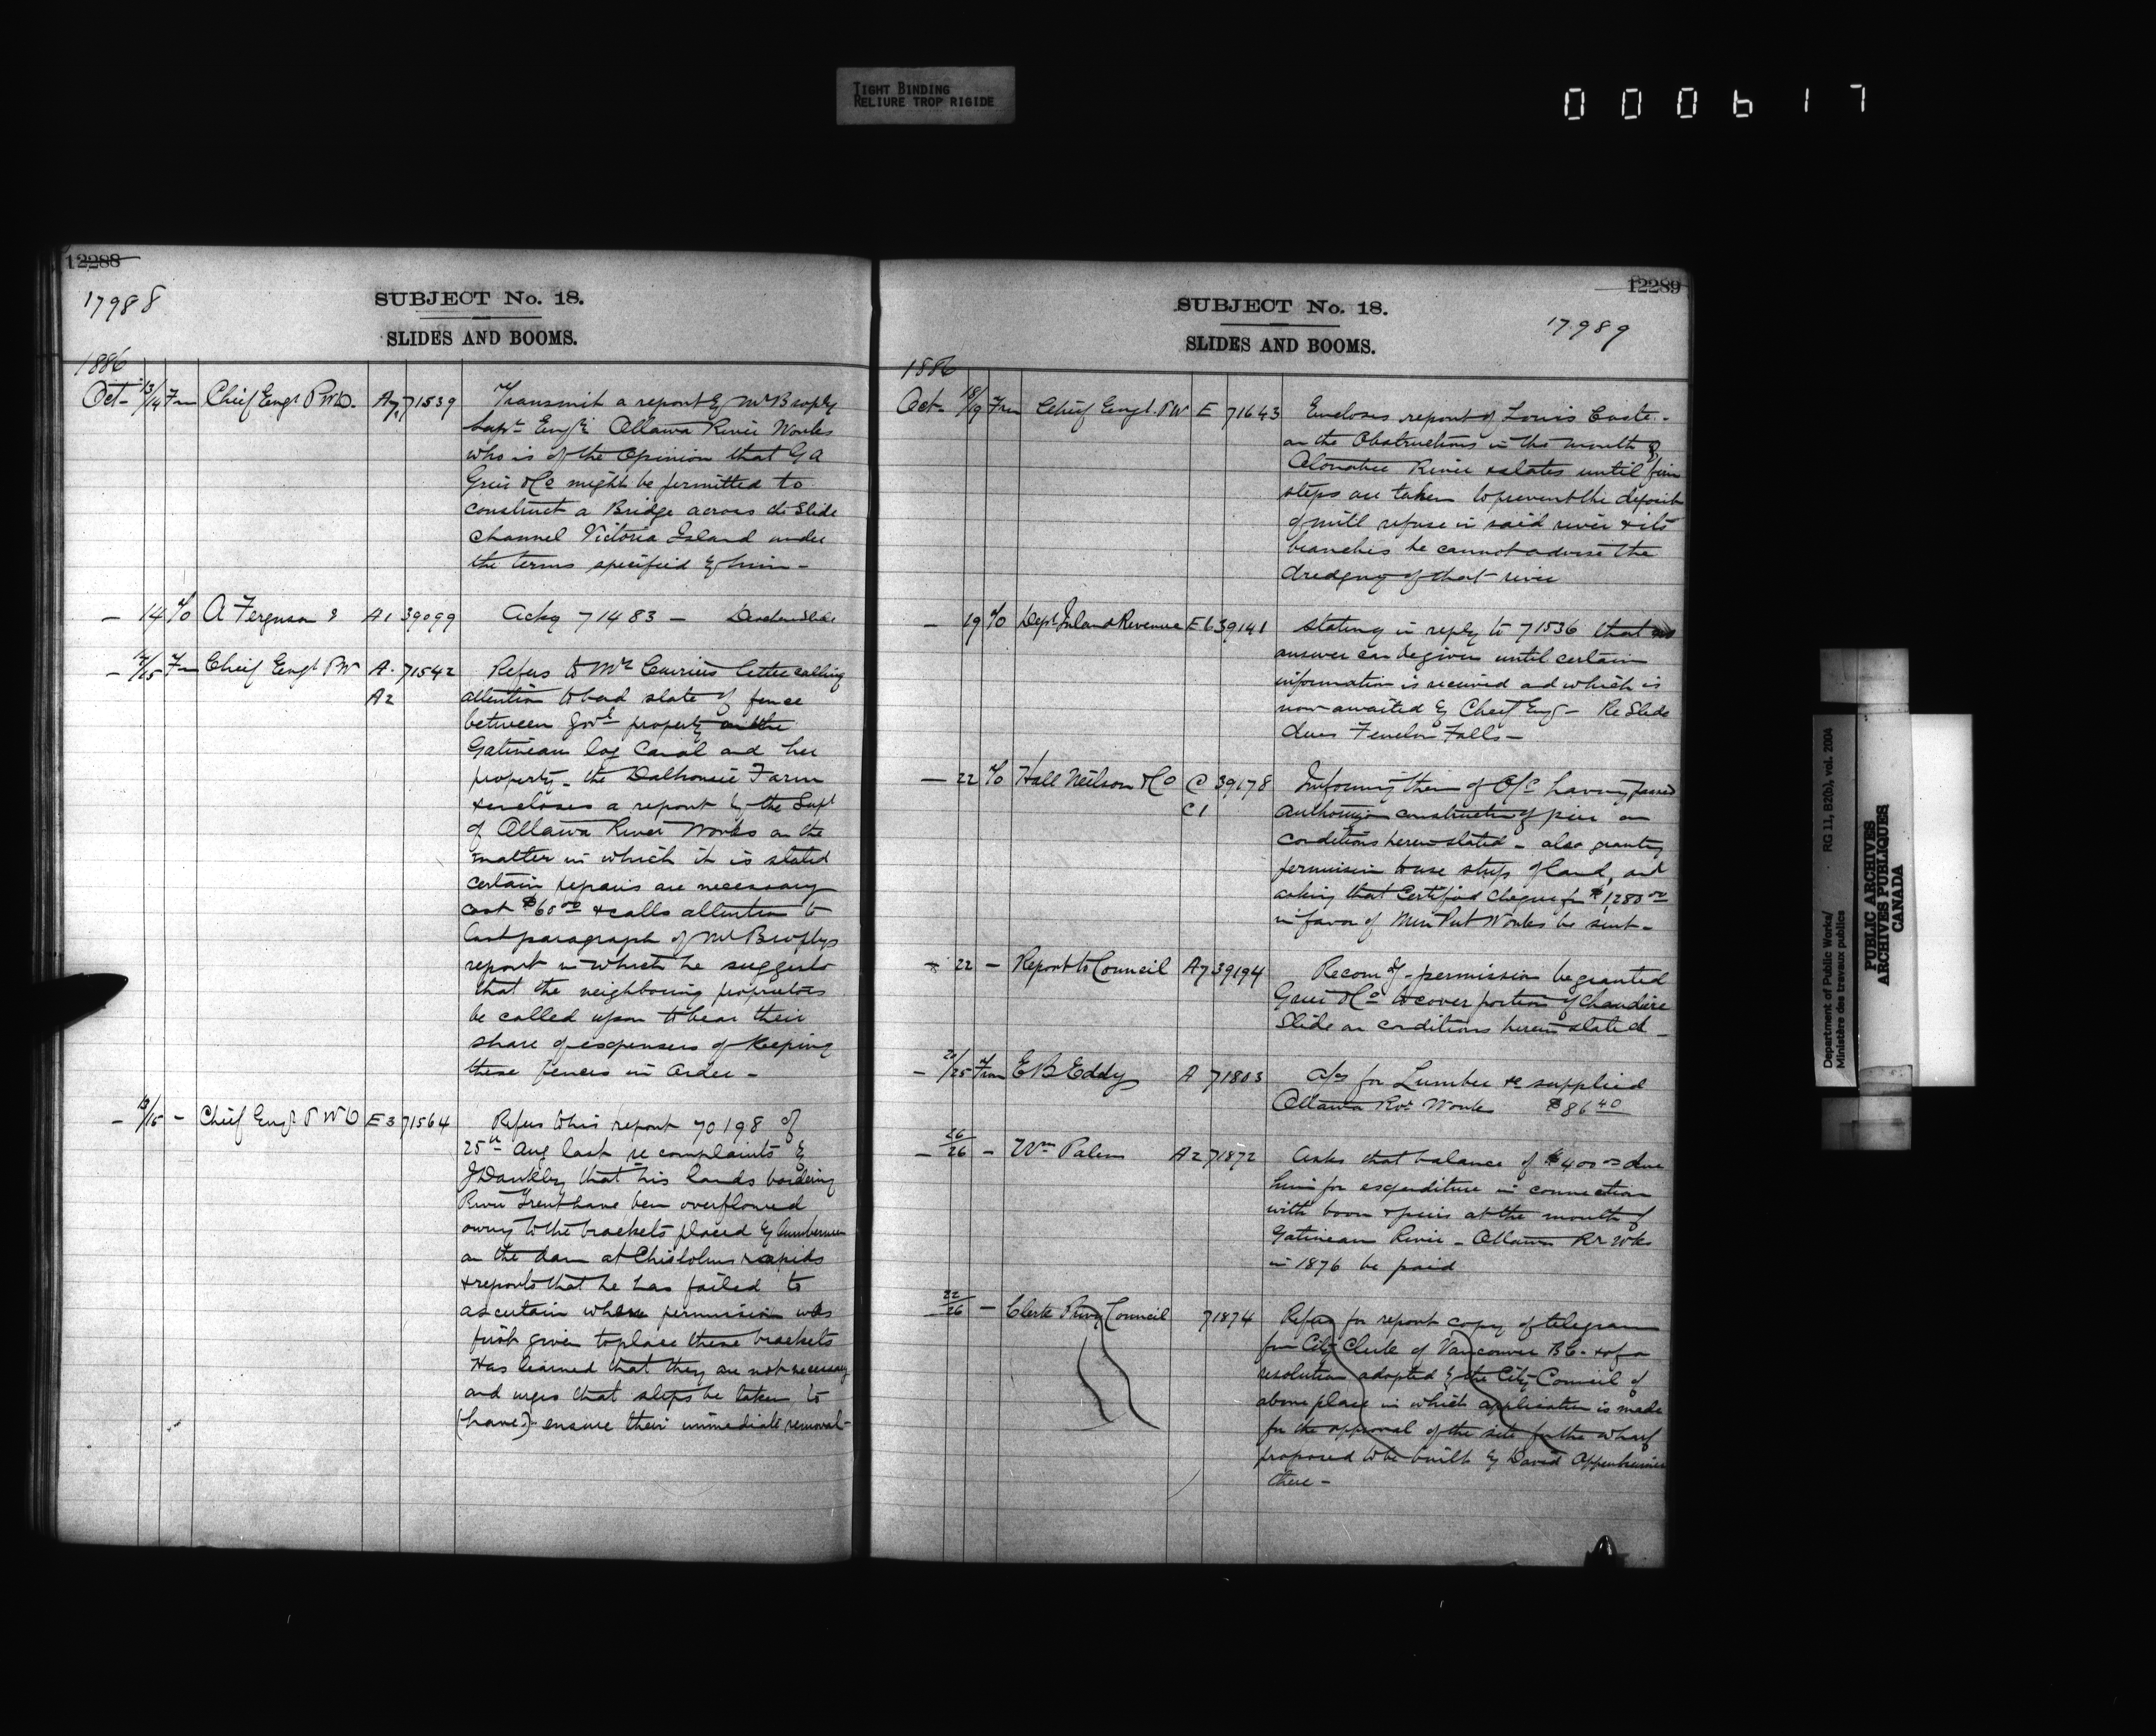 TIGHT BINDING
RELIURE TROP RIGIDE
000617
12288
17988
SUBJECT No. 18.
SLIDES AND BOOMS.
1886
Oct- 13/14 Frm Chief Engr P.W.D. A7 71539 Transmit a report by Mr Brophy
Supt Engr Ottawa River Works
who is of the Opinion that G A
Grier & Co might be permitted to
construct a Bridge across the Slide
channel Victoria Island under
the terms specified by him -
- 14 T/o A Ferguson A1 39099 Ackg 71483 -
- /15 Frm Chief Engr PW A. 71542 Refers to Mrs Curriers letter calling
A2 attention to bad state of fence
between Govt property on the
Gatineau log Canal and her
property - the Dalhousie Farm
& encloses a report by the Supt
of Ottawa River Works on the
matter in which it is stated
certain repairs are necessary
cost $60 00 & calls attention to
last paragraph of Mr Brophys
report in which he suggests
that the neighbouring proprietors
be called upon to bear their
share of expenses of keeping
these fences in order -
- /15 - Chief Engr P W D E3 71564 Refers to his report 70198 of
25th Aug last re complaints by
that his lands bordering
River Trent have been overflowed
owing to the brackets placed by lumbermen
on the dam at Chisholms rapids
& reports that he has failed to
ascertain where permission was
first given to place these brackets
Has learned that they are not necessary
and urges that steps be taken to
(have) ensure their immediate removal -
12289
17989
SUBJECT No. 18.
SLIDES AND BOOMS.
1886
Oct- 18/19 Frm Chief Engr. PW E 71643 Encloses report of Louis Coste -
on the Obstructions in the mouth of
Otonabee River & states until firm
steps are taken to prevent the deposit
of mill refuse in said river & its
branches he cannot advise the
dredging of that river
- 19 T/o Dept Inland Revenue E6 39141 Stating in reply to 71536 that no
answer can be given until certain
information is received and which is
now awaited by Chief Eng - Re Slide
dues Fenelon Falls -
- 22 T/o Hall Neilson & Co C 39178 Informing them of O/C having passed
C1 authorizg construction of pier on
conditions herein stated - also granting
permission to use strip of land, and
asking that Certified cheque for $1280 00
in favor of Min Pub Works be sent -
- 22 - Report to Council A7 39194 Recomdg - permission be granted
Grier & Co to cover portion of Chaudiere
Slide on conditions herein stated -
- 20/25 From E B Eddy A 71803 a/cs for Lumber &c supplied
Ottawa Rvr Works $86 40
- 26/26 - Wm Palen A2 71872 Asks that balance of $400 00 due
him for expenditure in connection
with boom & piers at the mouth of
Gatineau River - Ottawa Rr Wks
in 1876 be paid
22/26 - Clerk Privy Council 71874 Refers for report copy of telegram
from City Clerk of Vancouver B.C. & of a
resolution adopted by the City Council of
above place in which application is made
for the approval of the site for the wharf
proposed to be built by David Oppenheimer
there -
Department of Public Works/ RG 11, B2(b), vol. 2004
Ministère des travaux publics
PUBLIC ARCHIVES
ARCHIVES PUBLIQUES
CANADA